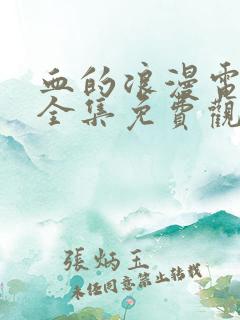 血的浪漫電
全集免費觀
張炳玉
未經同意禁止轉載